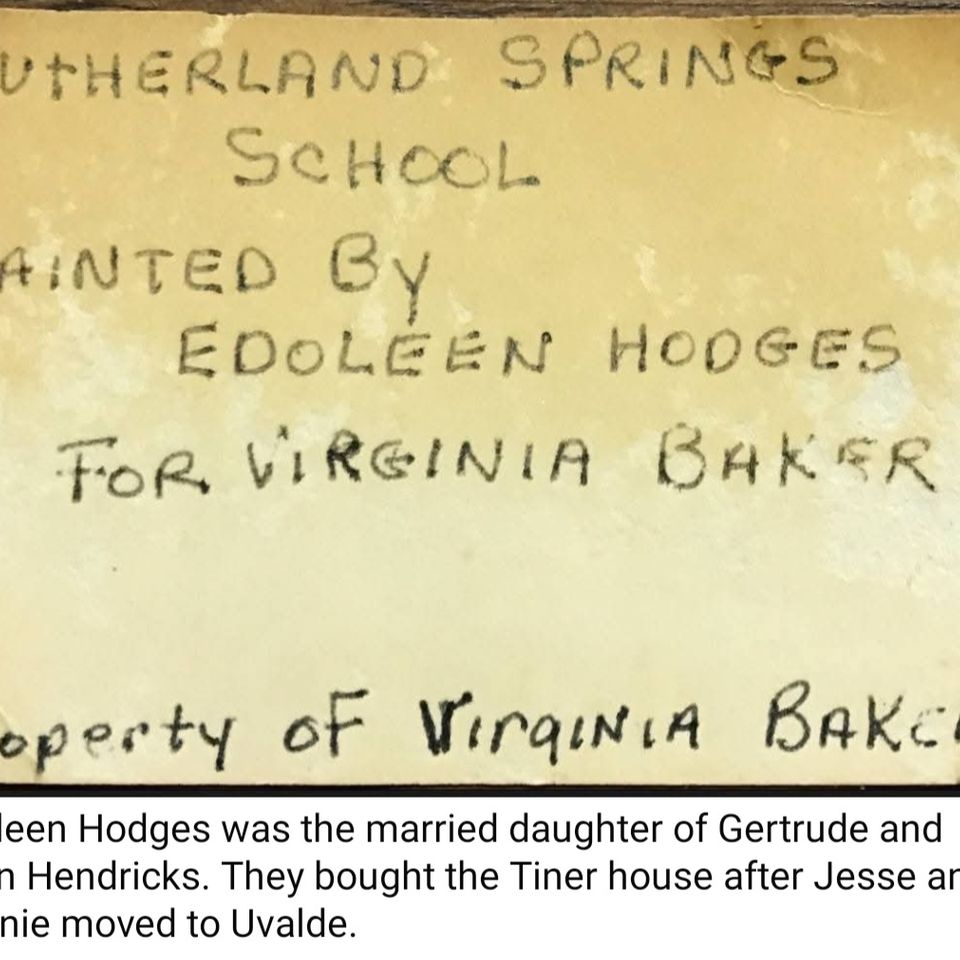 UTHERLAND SPRINGS
SCHOOL
AINTED By
EDOLEEN HODGES
FOR ViRGINIA BAKER
operty oF VirgiNiA BAKe
leen Hodges was the married daughter of Gertrude and
n Hendricks. They bought the Tiner house after Jesse an
nie moved to Uvalde.